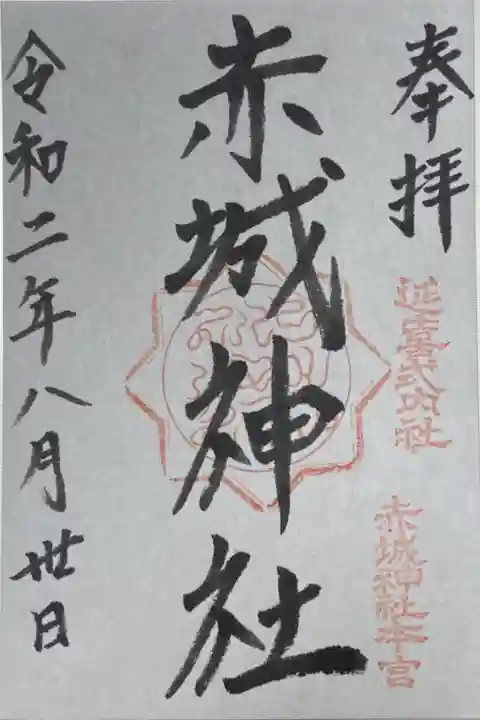 奉拝
延喜式内社
赤城神社本宮
赤城神社
令和二年八月卅日